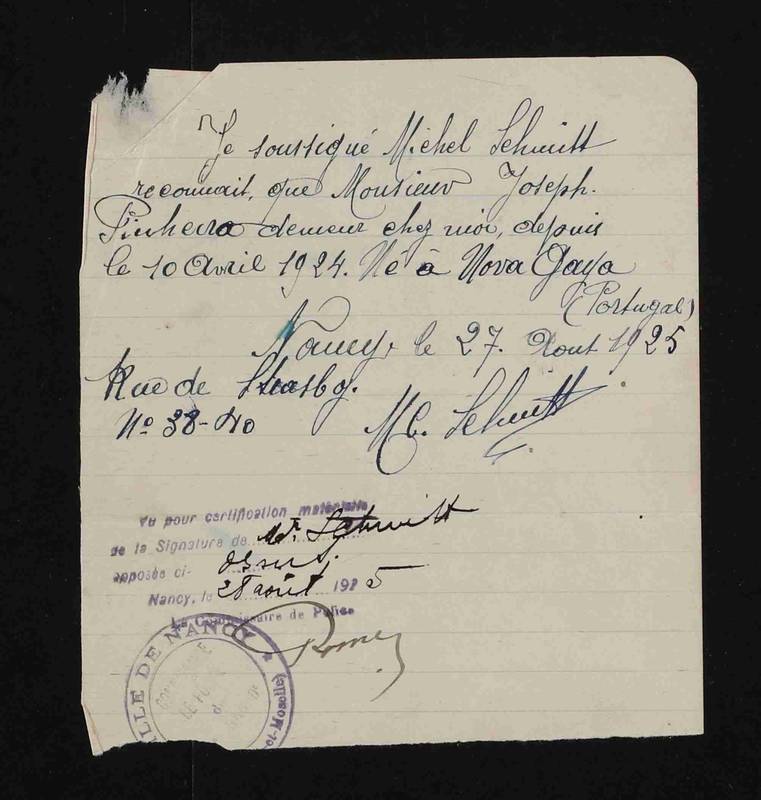 Je soussigué Michel Schmitt
reconnait, que Monsieur Joseph.
Pinheiro demeur chez moi, depuis
le 10 Avril 1924. Né à Nova Gaya
(Portugal)
Nancy, le 27. Aout 1925
Rue de Strasbg.
No 38-40
M. Schmitt
Vu pour certification matérielle
de la Signature de Mr. Schmitt
apposée ci-dessus.
Nancy, le 28 août 1925
Le Commissaire de Police
VILLE DE NANCY
et-Moselle)